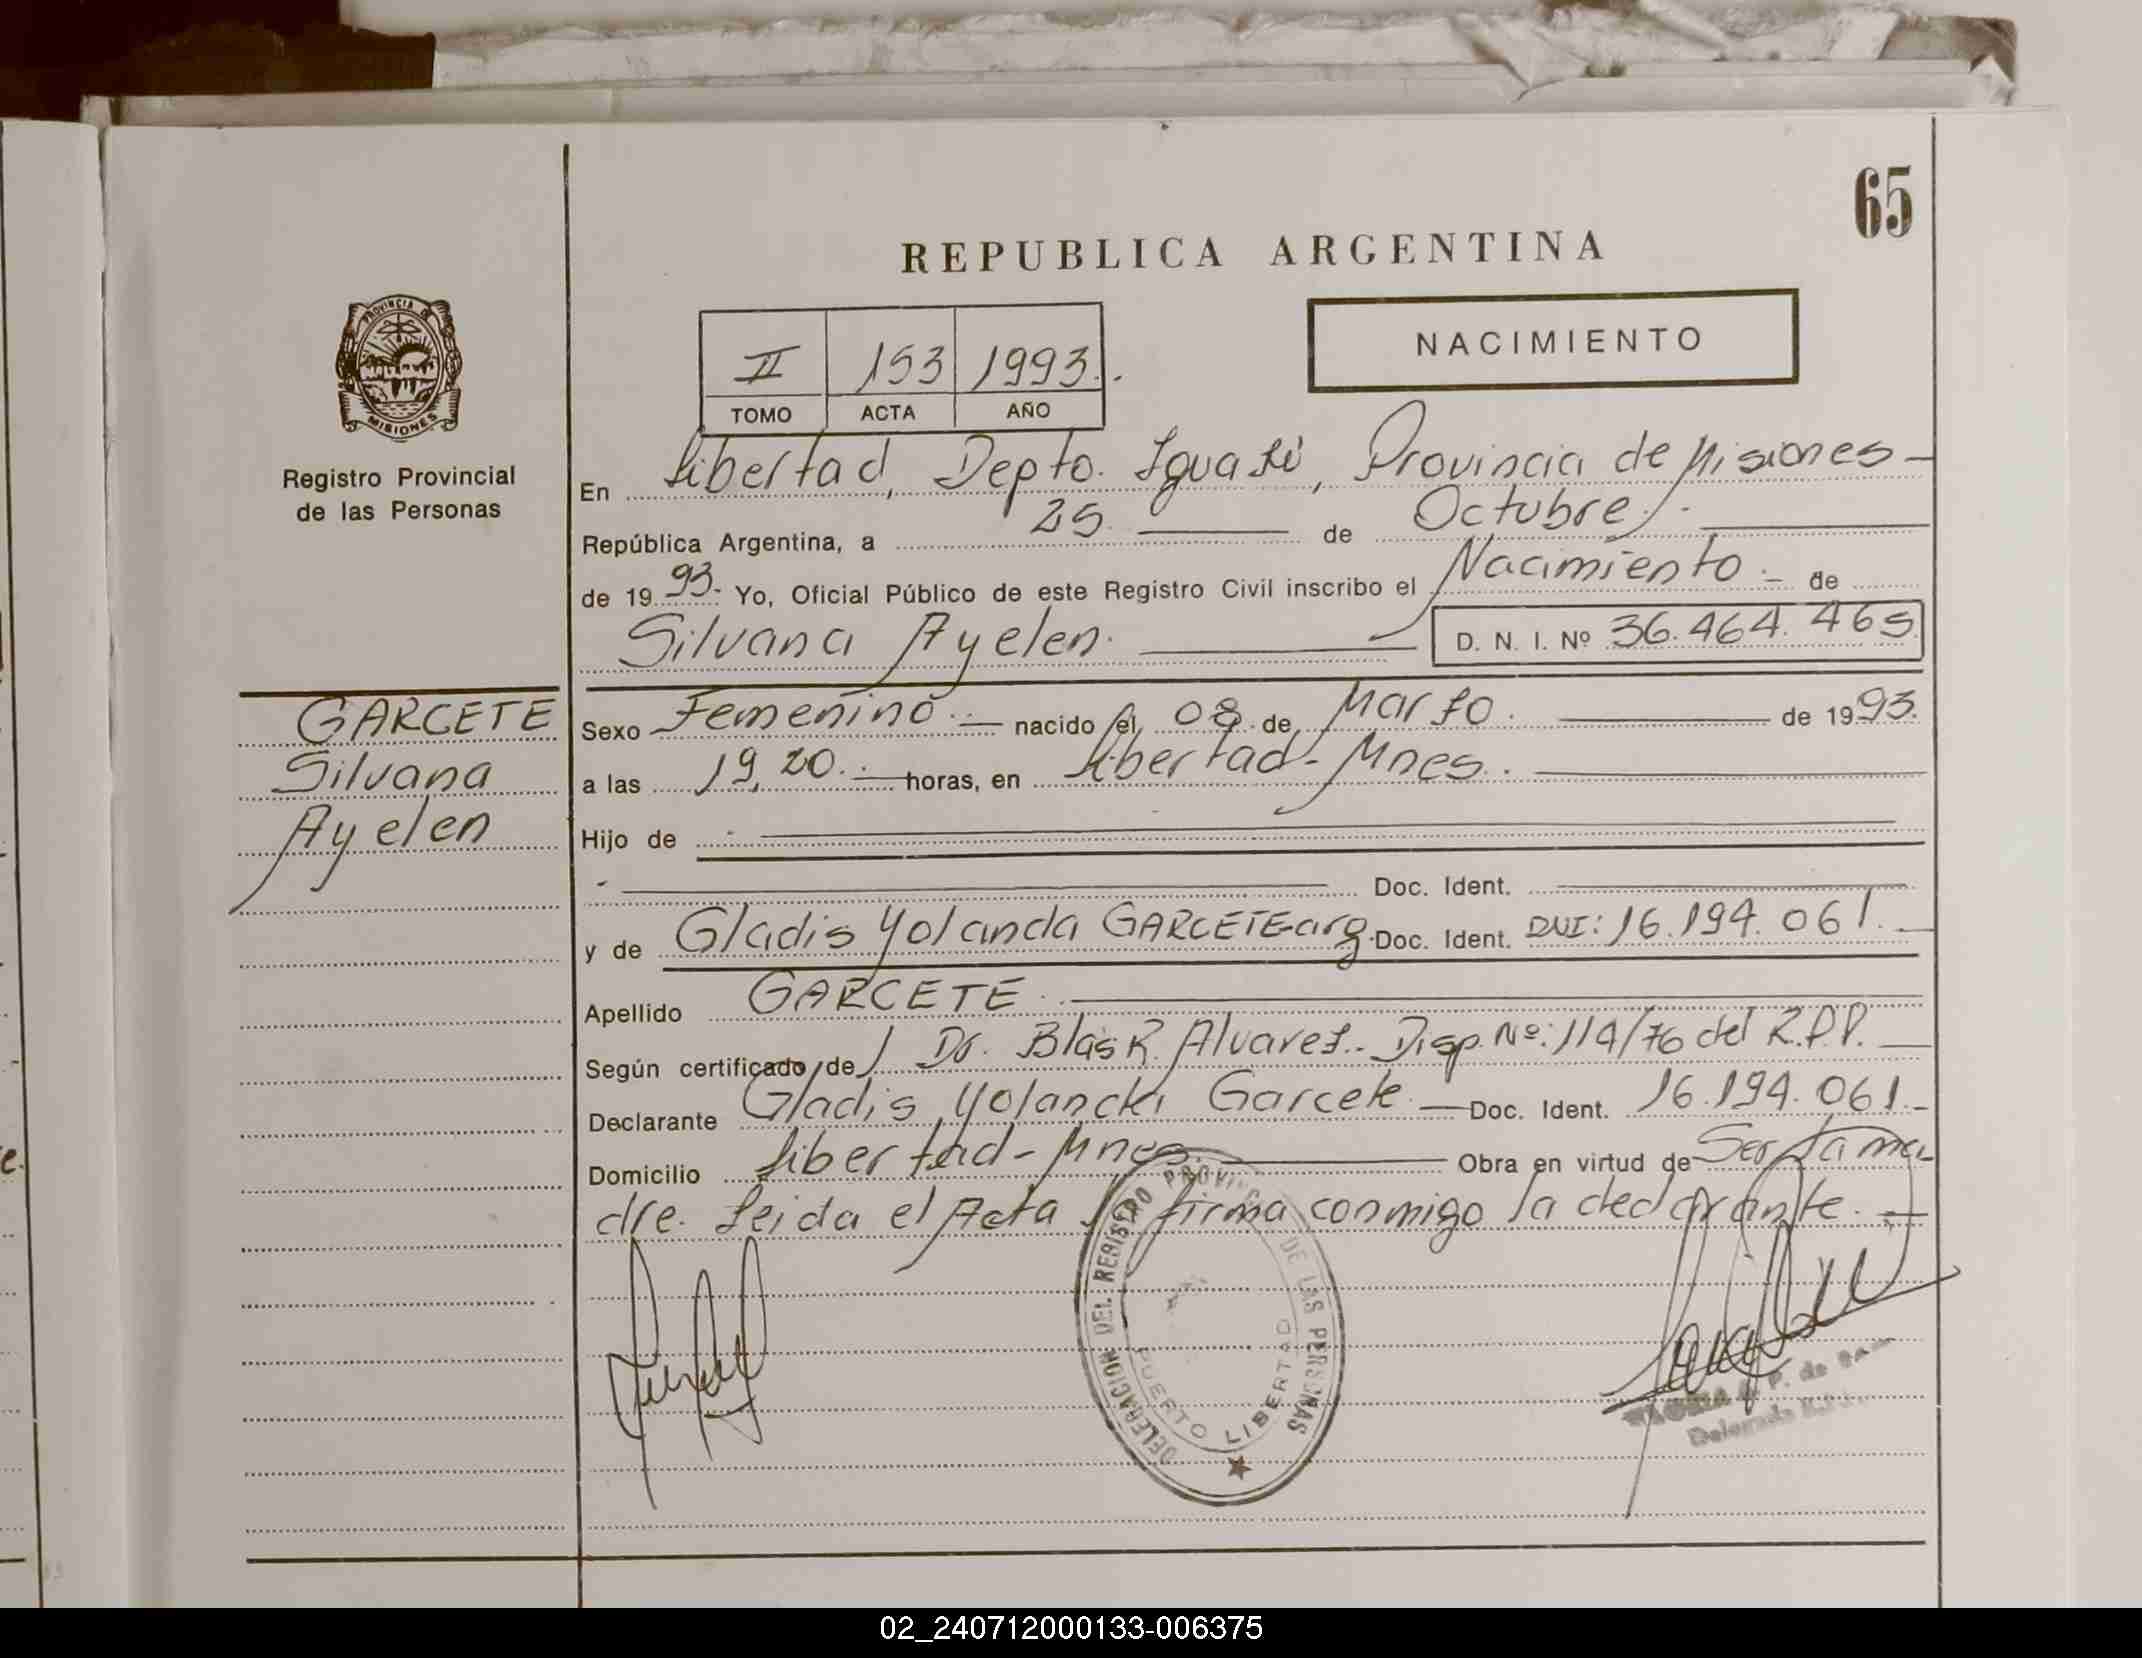 65
REPUBLICA ARGENTINA
PROVINCIA DE
MISIONES
Registro Provincial
de las Personas
II 153 1993.
TOMO ACTA AÑO
NACIMIENTO
En Libertad, Depto. Iguazú, Provincia de Misiones
República Argentina, a 25 de Octubre
de 1993. Yo, Oficial Público de este Registro Civil inscribo el Nacimiento de
Silvana Ayelen.
D. N. I. Nº 36.464.465
GARCETE
Silvana
Ayelen
Sexo Femenino nacido el 08 de Marzo de 1993.
a las 19,20 horas, en Libertad - Mnes.
Hijo de
Doc. Ident.
y de Gladis Yolanda GARCETE-arg. Doc. Ident. DNI: 16.194.061.
Apellido GARCETE
Según certificado de Dr. Blas R. Alvarez. Disp. Nº: 114/76 del R.P.P.
Declarante Gladis Yolanda Garcete Doc. Ident. 16.194.061.
Domicilio Libertad - Mnes. Obra en virtud de Ser la ma
dre. Leida el Acta firma conmigo la declarante.
DELEGACION DEL REGISTRO PROVINCIAL DE LAS PERSONAS
PUERTO LIBERTAD
P. de
Delegada
02_240712000133-006375